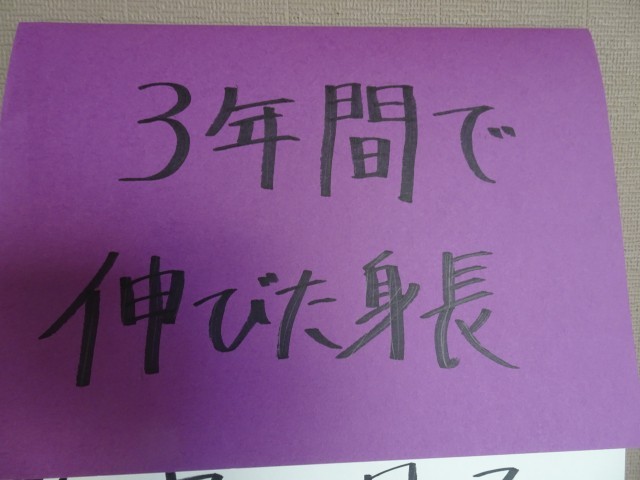 3年間で
伸びた身長